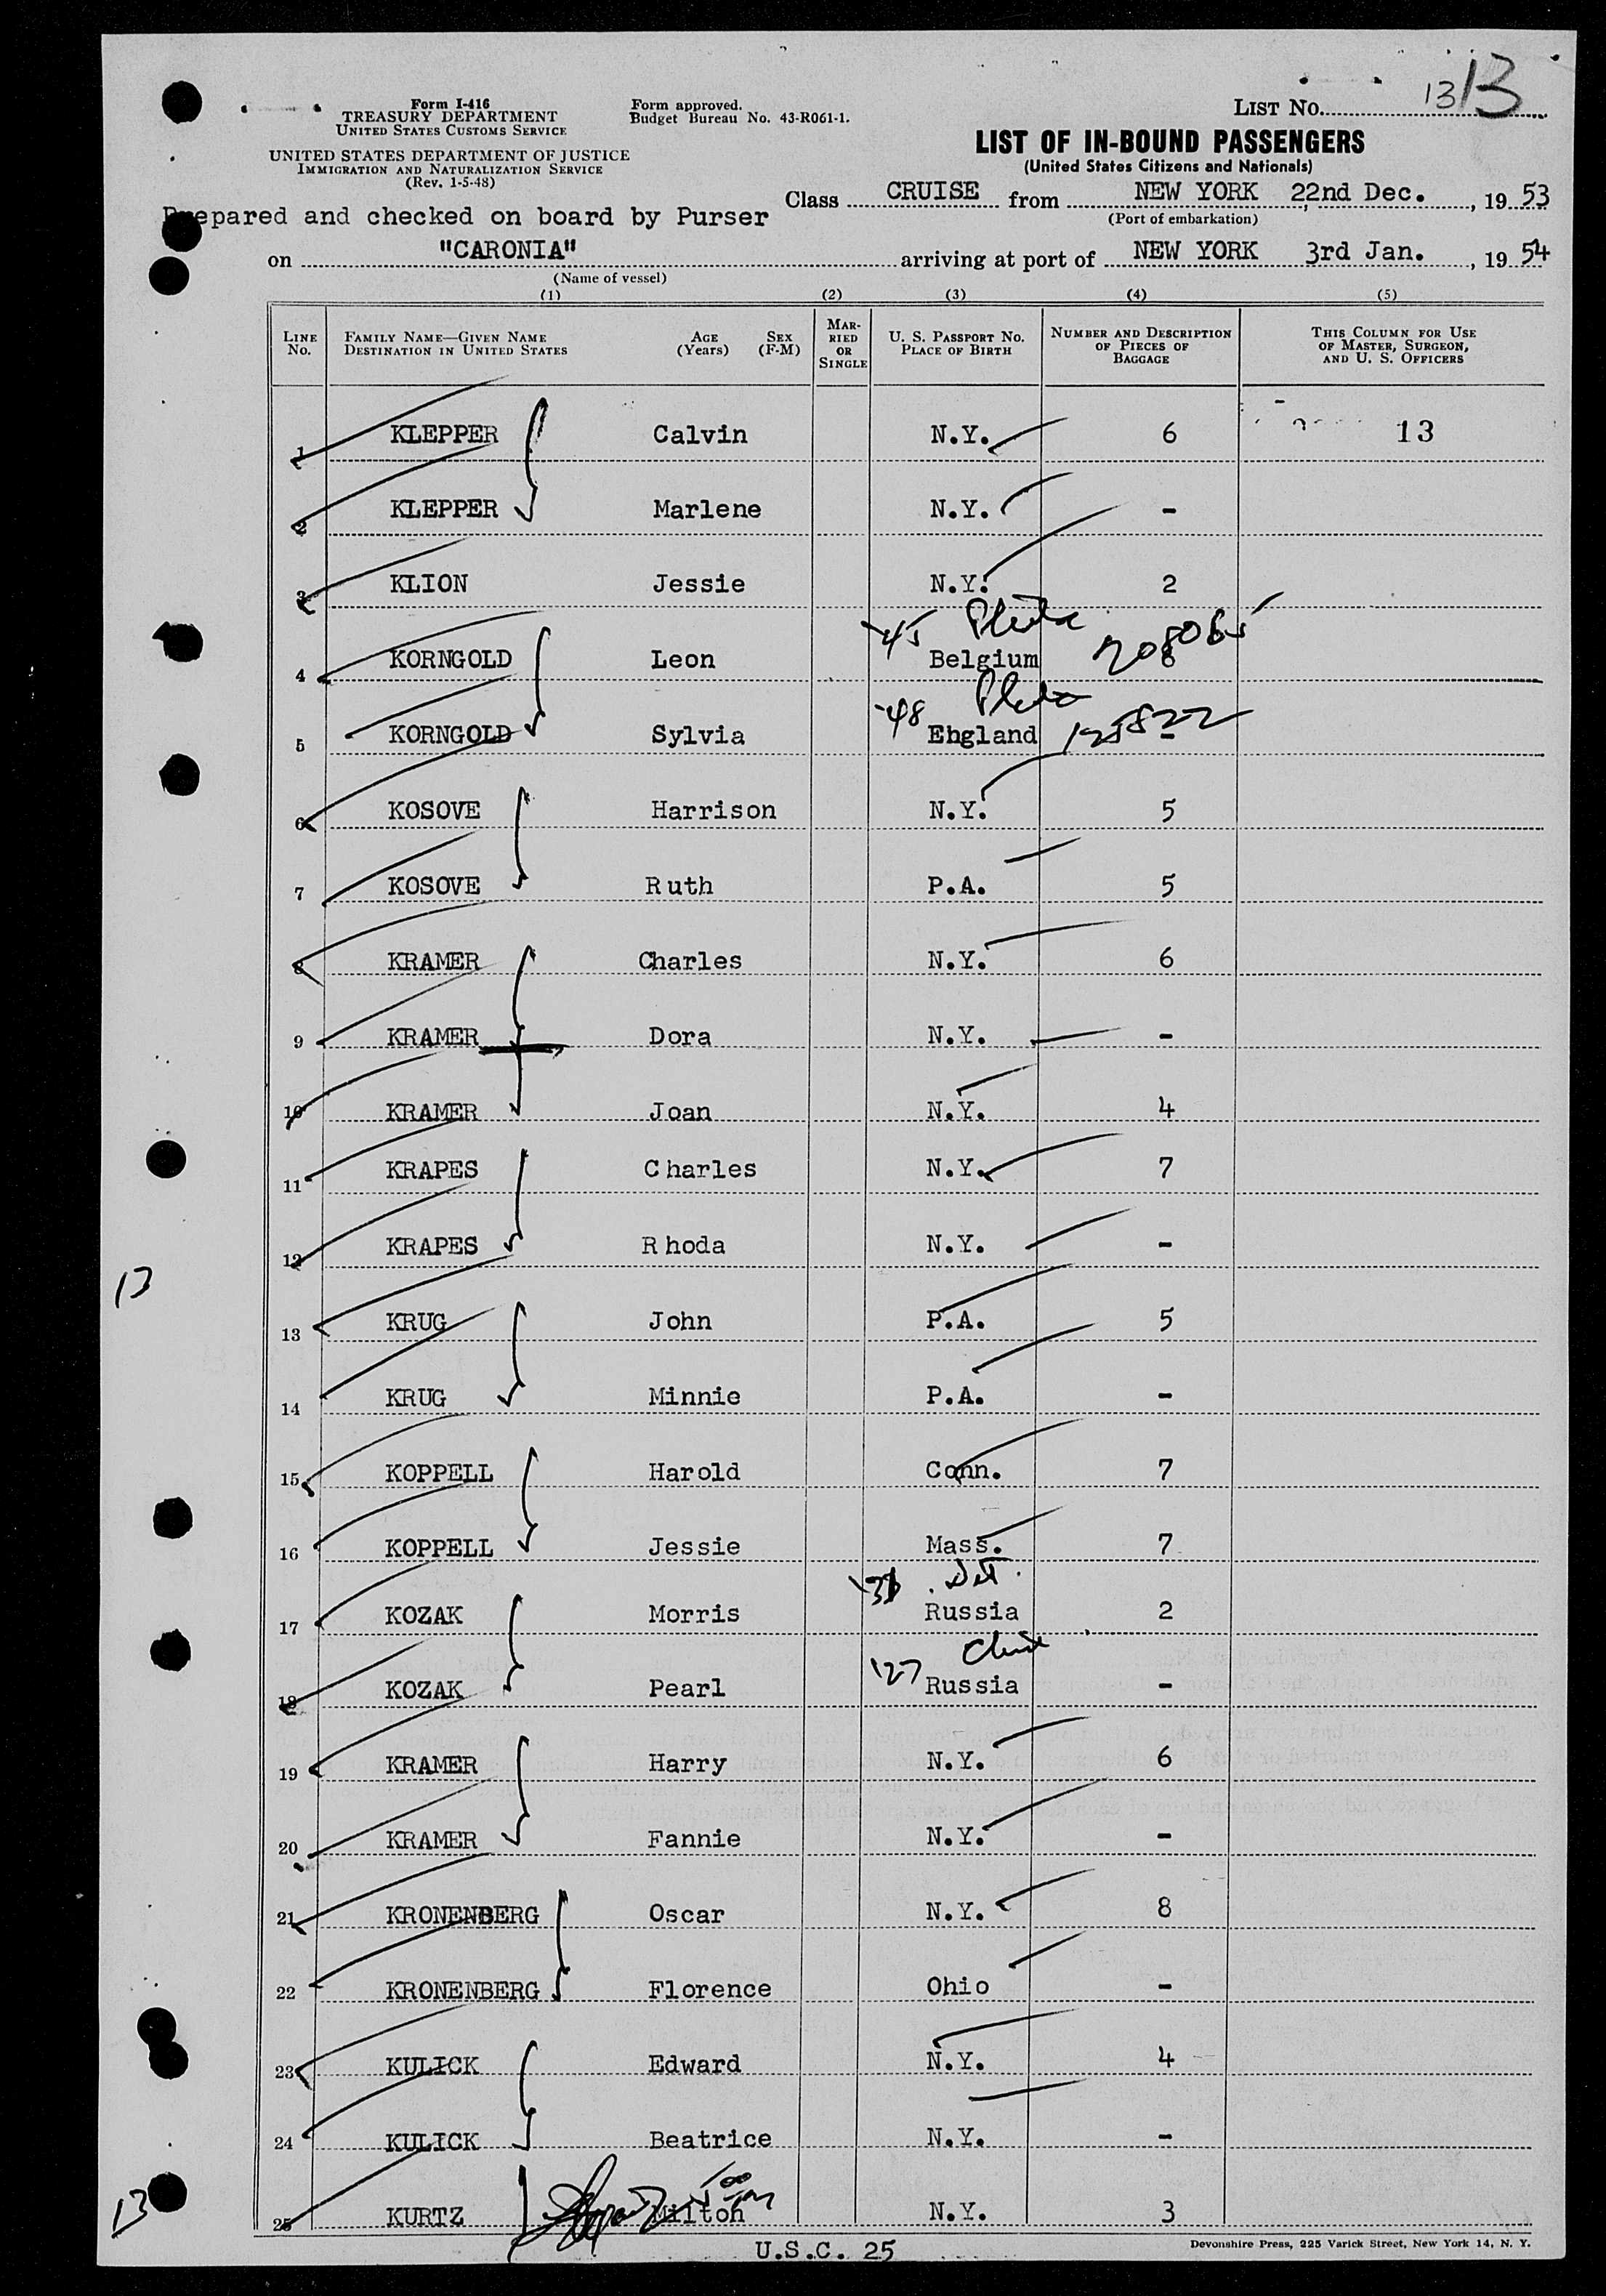 13 13
Form I-416
TREASURY DEPARTMENT
UNITED STATES CUSTOMS SERVICE
UNITED STATES DEPARTMENT OF JUSTICE
IMMIGRATION AND NATURALIZATION SERVICE
(Rev. 1-5-48)
Form approved.
Budget Bureau No. 43-R061-1.
LIST No.
LIST OF IN-BOUND PASSENGERS
(United States Citizens and Nationals)
Class CRUISE from NEW YORK 22nd Dec., 1953
(Port of embarkation)
Prepared and checked on board by Purser
on "CARONIA" arriving at port of NEW YORK 3rd Jan., 1954
(Name of vessel)
(1) (2) (3) (4) (5)
LINE No. FAMILY NAME—GIVEN NAME DESTINATION IN UNITED STATES AGE (Years) SEX (F-M) MARRIED OR SINGLE U. S. PASSPORT NO. PLACE OF BIRTH NUMBER AND DESCRIPTION OF PIECES OF BAGGAGE THIS COLUMN FOR USE OF MASTER, SURGEON, AND U. S. OFFICERS
1 KLEPPER Calvin N.Y. 6 13
2 KLEPPER Marlene N.Y. -
3 KLION Jessie N.Y. 2
-45
4 KORNGOLD Leon Belgium 6
-48
5 KORNGOLD Sylvia Ehgland -
6 KOSOVE Harrison N.Y. 5
7 KOSOVE Ruth P.A. 5
8 KRAMER Charles N.Y. 6
9 KRAMER Dora N.Y. -
10 KRAMER Joan N.Y. 4
11 KRAPES Charles N.Y. 7
12 KRAPES Rhoda N.Y. -
13
13 KRUG John P.A. 5
14 KRUG Minnie P.A. -
15 KOPPELL Harold Conn. 7
16 KOPPELL Jessie Mass. 7
17 KOZAK Morris Russia 2
'27
18 KOZAK Pearl Russia -
19 KRAMER Harry N.Y. 6
20 KRAMER Fannie N.Y. -
21 KRONENBERG Oscar N.Y. 8
22 KRONENBERG Florence Ohio -
23 KULICK Edward N.Y. 4
24 KULICK Beatrice N.Y. -
25 KURTZ Milton N.Y. 3
13
U.S.C. 25
Devonshire Press, 225 Varick Street, New York 14, N. Y.